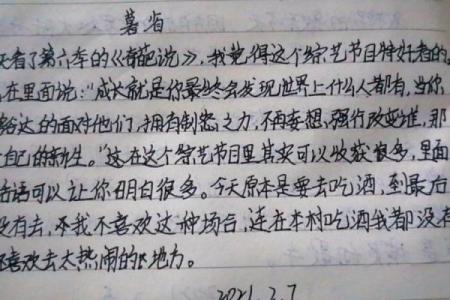 暮省
天看了第六季的《奇葩说》，我觉得这个综艺节目特好看的。
在里面说："成长就是你最终会发现世界上什么人都有，当你
豁达的面对他们，拥有制怒之力，不再妄想，强行改变谁，那
自己的新生。"这在这个综艺节目里其实可以收获很多，里面
话语可以让你明白很多。今天原本是要去吃酒，到最后
没有去，我不喜欢这种场合，连在本村吃酒我都没有
喜欢去太热闹的地方。
2021.2.7